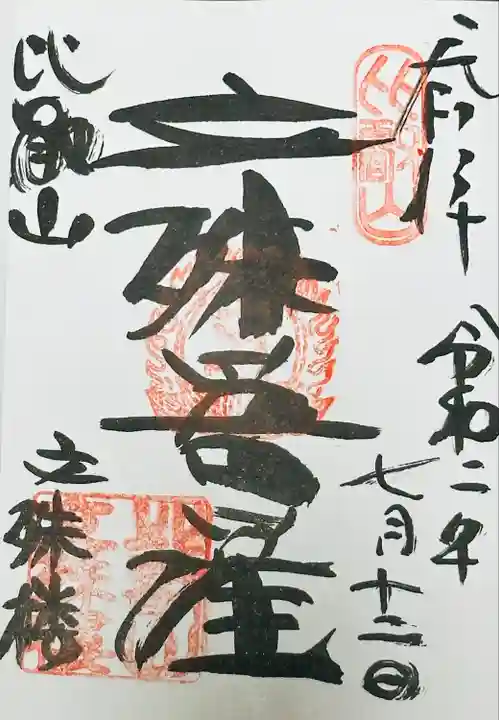 奉拝
比叡山
令和二年
七月十二日
文殊菩薩
比叡山
文殊楼